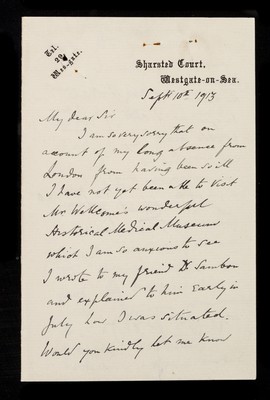 Tel.
29
Westgate.
Sharsted Court,
Westgate-on-Sea.
Sept 10th 1913
My dear Sir
I am so very sorry that on
account of my long absence from
London from having been so ill
I have not yet been able to visit
Mr Wellcome's wonderful
Historical Medical Museum
which I am so anxious to see
I wrote to my friend Dr Sambon
and explained to him early in
July how I was situated.
Would you kindly let me know